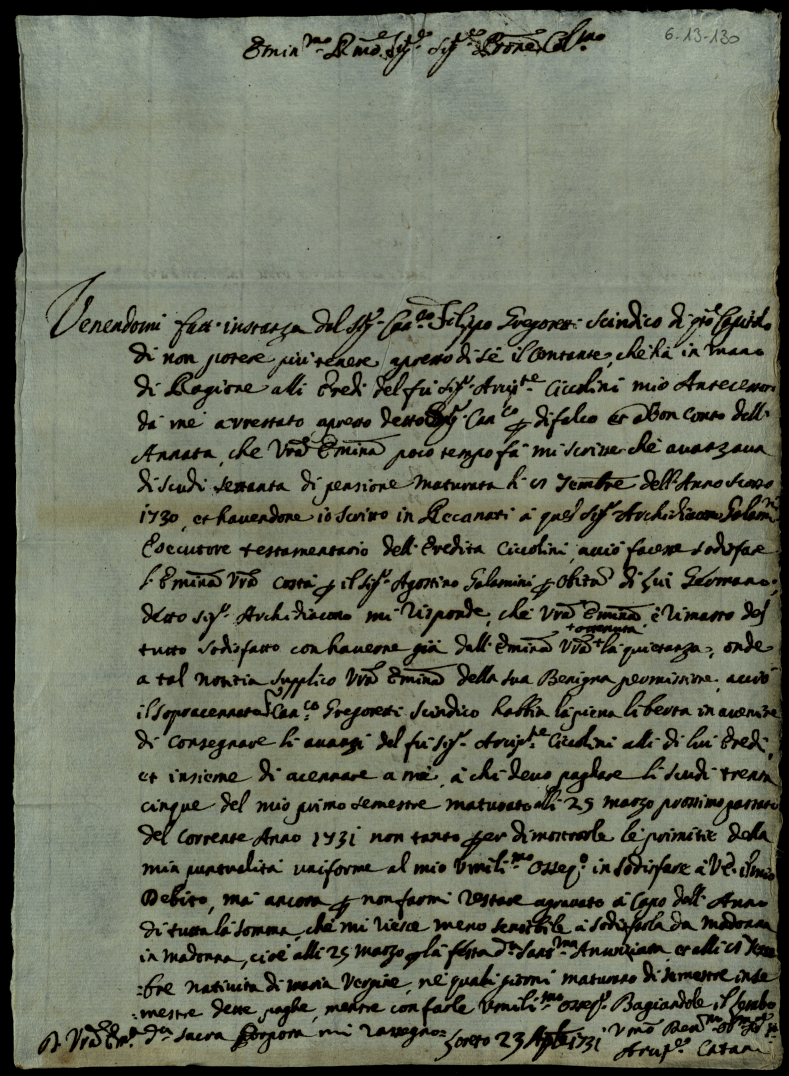 6-13-130
Emin.mo R.mo Sig.re Sig.re Prone Col.mo
Venendomi fatt'instanza del Sig.r Can.co Filippo Gregoretti Scindico di q.to Capitolo
di non potere più tenere apresso di sé il Contante, che hà in mano
di Ragione alli Eredi del fù Sig.r Arcip.te Ciccolini mio Antecessore
da me arrestato apresso detto Sig.r Can.co p difalco et à Bon Conto dell'
Annata, che Vrã Eminã poco tempo fà mi scrisse che avanzava
di scudi settanta di pensione maturata li 8 7embre dell'Anno scorso
1730, et havendone io scritto in Recanati à quel Sig.r Archidiacono Galamini
Esecutore testamentario dell'Eredita Ciccolini, acciò facesse sodisfare
l'Eminã Vrã costà p il Sig.r Agostino Galamini p Obito di lui Germano,
detto Sig.r Archidiacono mi risponde, che Vrã Eminã è rimasto del
tutto sodisfatto con haverne già dall'Eminã Vrã ottenuta la quietanza, onde
a tal notitia supplico Vrã Eminã della sua Benigna permissione, acciò
il sopracennato Can.co Gregoretti Scindico habbia la piena libertà in avenire
di consegnare li avanzi del fù Sig.r Arcip.te Ciccolini alli di lui Eredi,
et insieme di acennare a mè, à chi devo pagare li scudi trenta
cinque del mio primo semestre maturato alli 25 marzo prossimo passato
del corrente Anno 1731 non tanto per dimostrarle le primitie della
mia puntualità uniforme al mio Umili.mo Osseq.o in sodisfare à VE. il mio
Debito, mà ancora p non farmi restare agravato à Capo dell'Anno
di tutta la somma, che mi riesce meno sensibile à sodisfarla da madonna
in madonna, cioè alli 25 marzo p la festa d. Sant.ma Anunziata, et alli 8 7em
=bre natività di Maria Vergine, ne quali giorni maturano di semestre in se
=mestre dette paghe, mentre con farle Umili.mo Osseq.o Bagiandole il Lembo
D. Vrã Em.a d.a Sacra Porpora mi rassegno= Loreto 23 Aple 1731
Arcip.e Catani